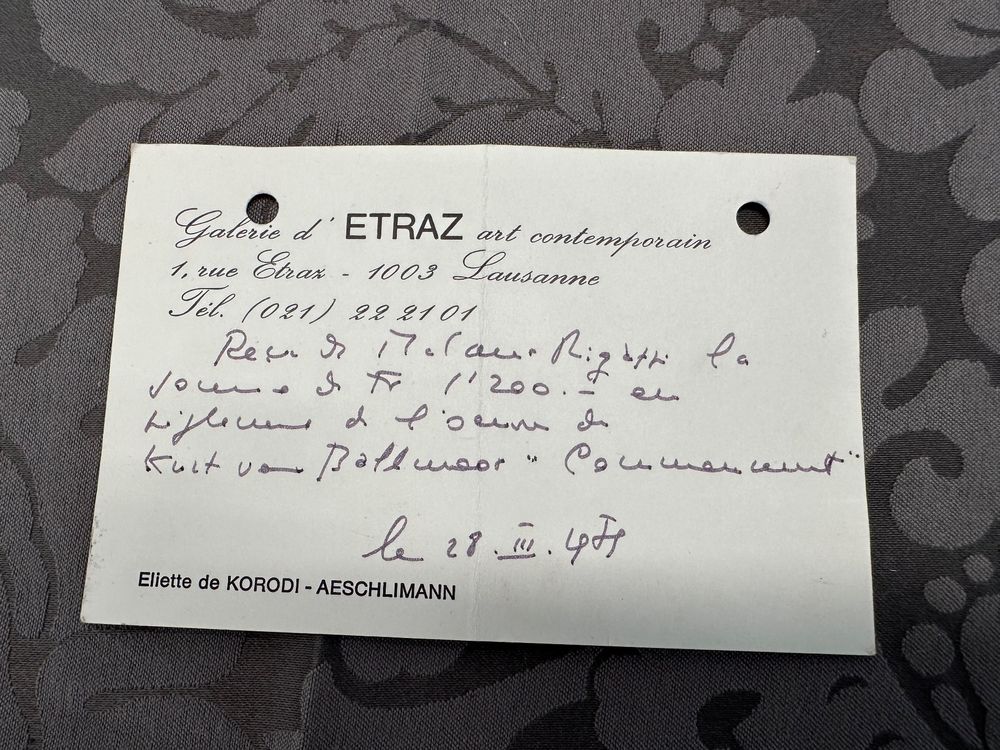 Galerie d' ETRAZ art contemporain
1, rue Etraz - 1003 Lausanne
Tél. (021) 22 21 01
Reçu de la
somme de Fr 1'200.- en
règlement de l'oeuvre de
Kurt von Ballmoos "Commencement"
le 28. III.
Eliette de KORODI - AESCHLIMANN